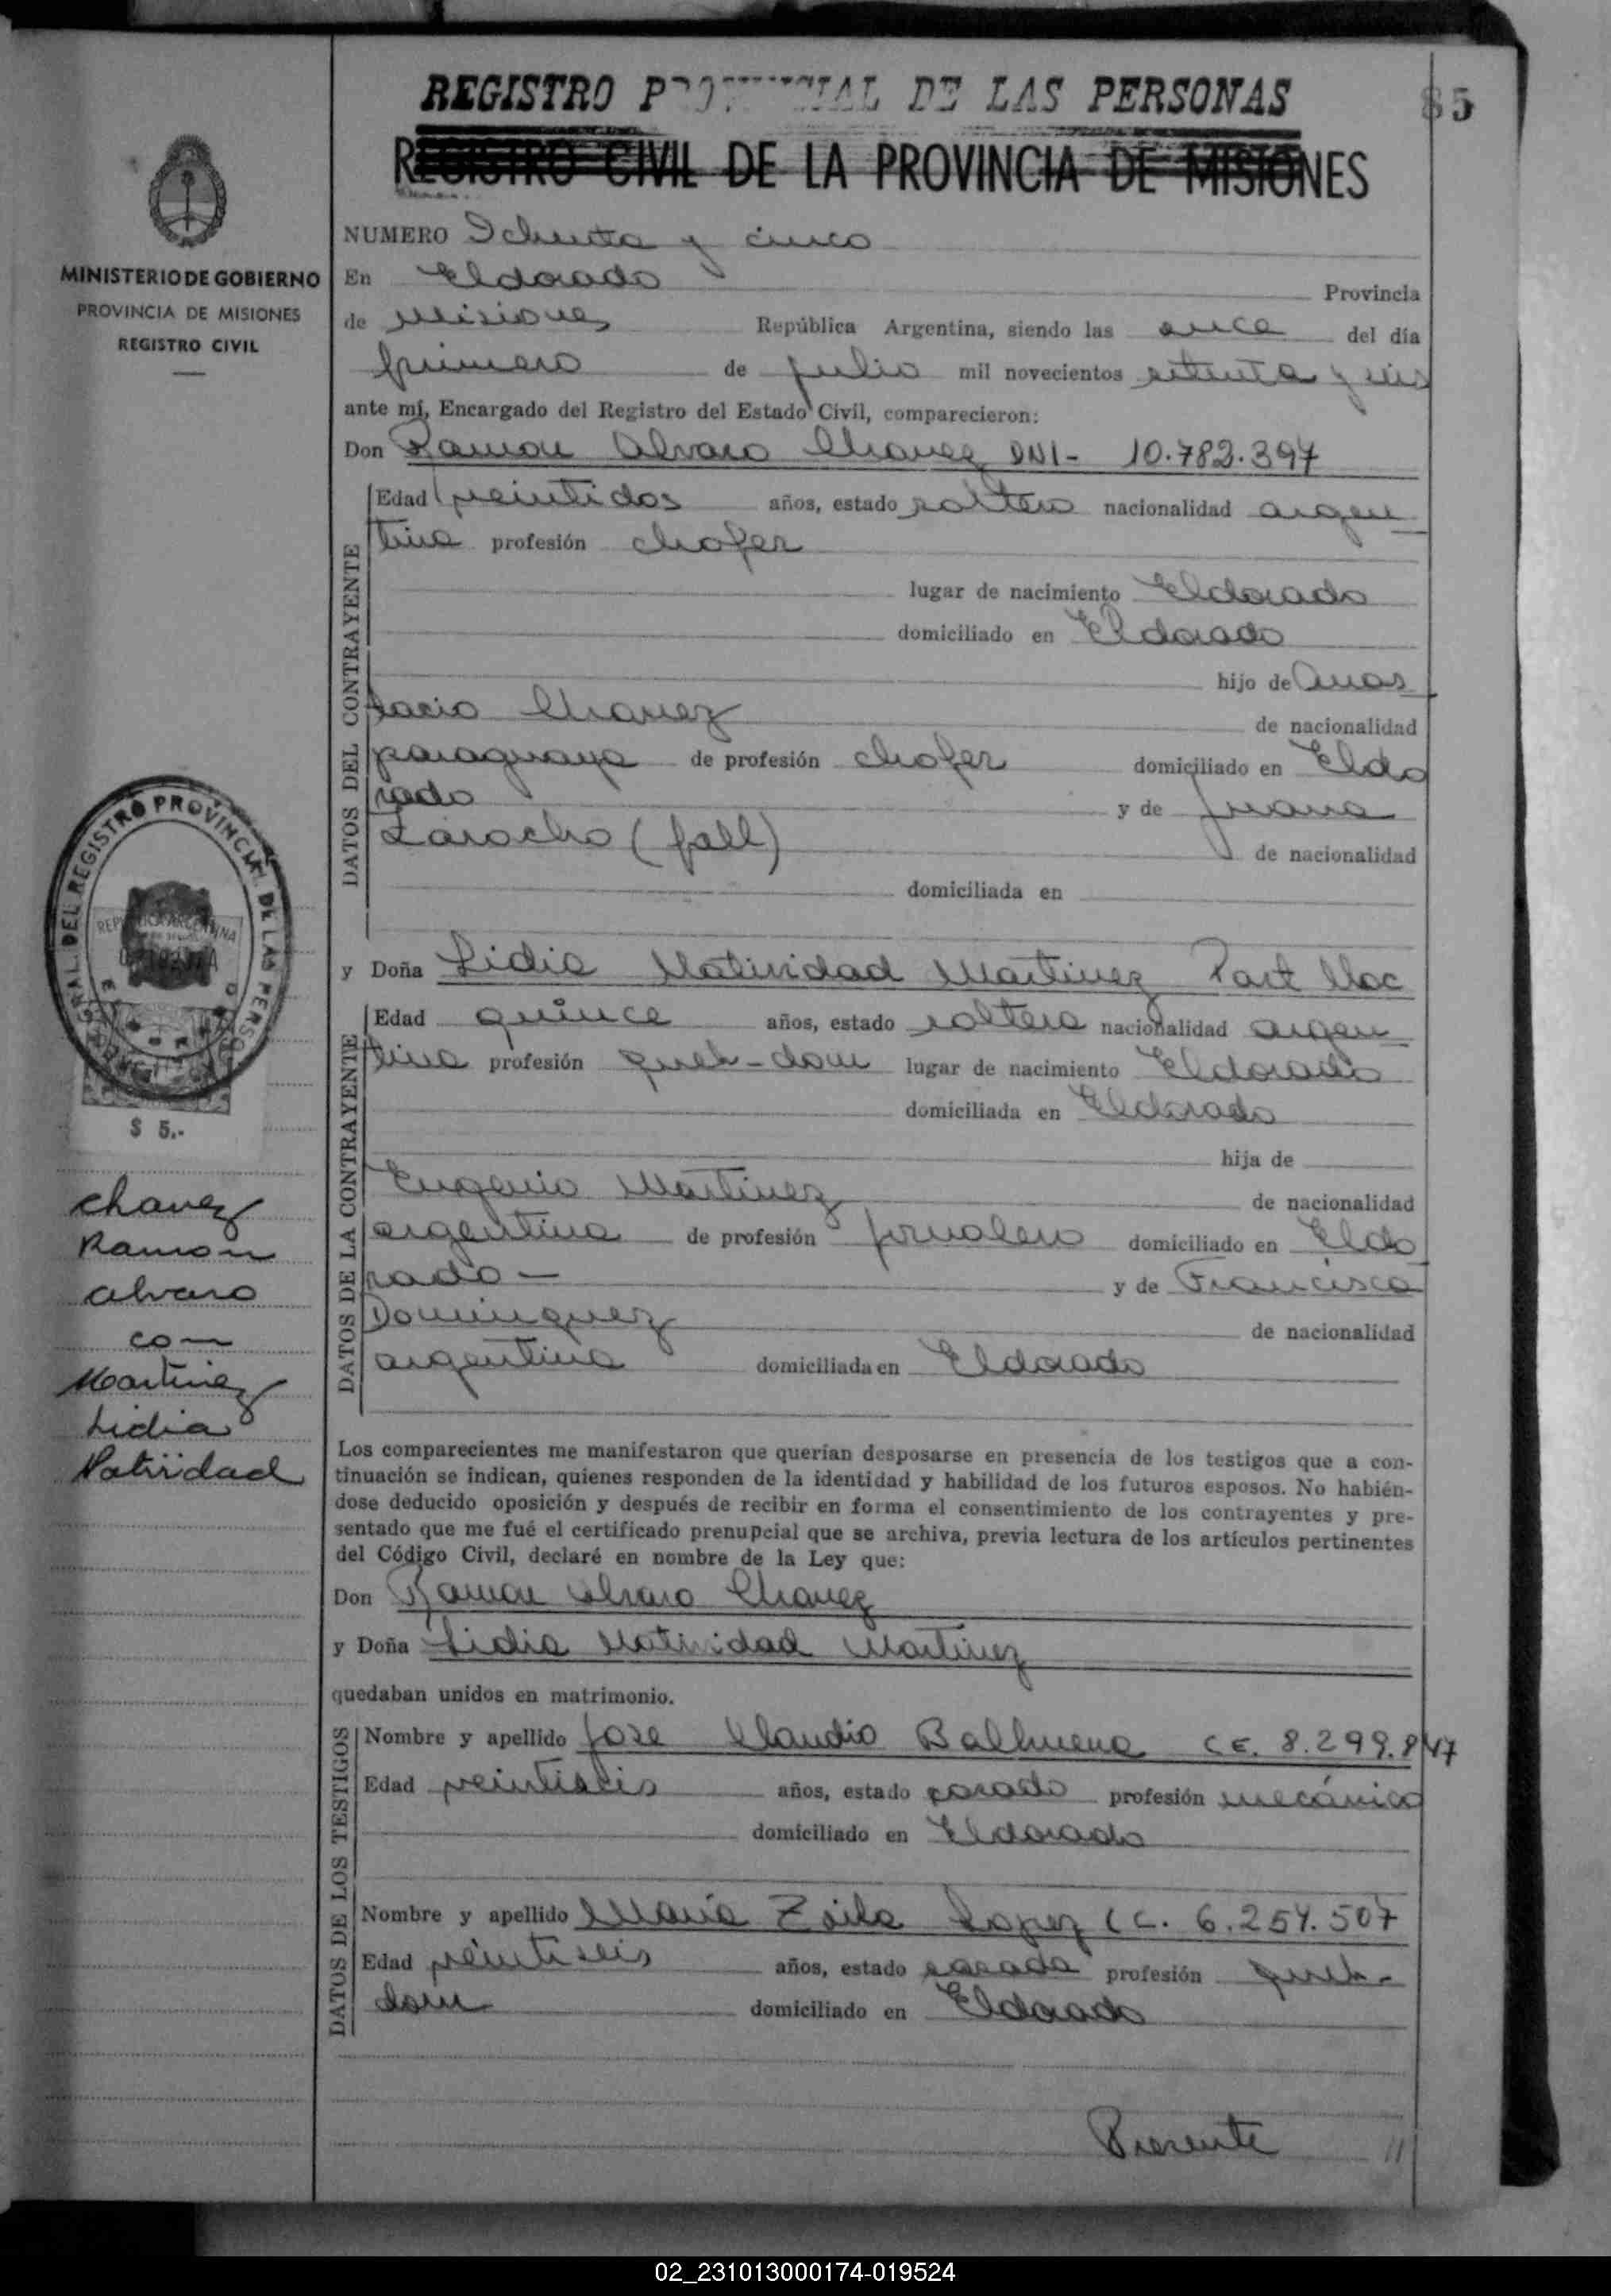 REGISTRO PROVINCIAL DE LAS PERSONAS
85
REGISTRO CIVIL DE LA PROVINCIA DE MISIONES
MINISTERIO DE GOBIERNO
PROVINCIA DE MISIONES
REGISTRO CIVIL
NUMERO Ochenta y cinco
En Eldorado Provincia
de Misiones República Argentina, siendo las once del día
primero de julio mil novecientos setenta y seis
ante mí, Encargado del Registro del Estado Civil, comparecieron:
Don Ramon Alvaro Chavez DNI- 10.783.397
DATOS DEL CONTRAYENTE
Edad veintidos años, estado soltero nacionalidad argen
tina profesión chofer
lugar de nacimiento Eldorado
domiciliado en Eldorado
hijo de Anas
tacio Chavez de nacionalidad
paraguaya de profesión chofer domiciliado en Eldo
rado y de Juana
Larocho (fall) de nacionalidad
domiciliada en
y Doña Lidia Natividad Martinez Part Nac
DATOS DE LA CONTRAYENTE
Edad quince años, estado soltera nacionalidad argen
tina profesión queh-dom lugar de nacimiento Eldorado
domiciliada en Eldorado
hija de
Eugenio Martinez de nacionalidad
argentina de profesión jornalero domiciliado en Eldo
rado- y de Francisca
Dominguez de nacionalidad
argentina domiciliada en Eldorado
GRAL. DEL REGISTRO PROVINCIAL DE LAS PERSO
REPUBLICA ARGENTINA
$ 5.-
Chavez
Ramon
Alvaro
con
Martinez
Lidia
Natividad
Los comparecientes me manifestaron que querían desposarse en presencia de los testigos que a con-
tinuación se indican, quienes responden de la identidad y habilidad de los futuros esposos. No habién-
dose deducido oposición y después de recibir en forma el consentimiento de los contrayentes y pre-
sentado que me fué el certificado prenupcial que se archiva, previa lectura de los artículos pertinentes
del Código Civil, declaré en nombre de la Ley que:
Don Ramon Alvaro Chavez
y Doña Lidia Natividad Martinez
quedaban unidos en matrimonio.
DATOS DE LOS TESTIGOS
Nombre y apellido Jose Claudio Balbuena C.E. 8.299.847
Edad veintiseis años, estado casado profesión mecánico
domiciliado en Eldorado
Nombre y apellido Maria Zoila Lopez C.C. 6.254.507
Edad veintiseis años, estado casada profesión queh-
dom domiciliado en Eldorado
Presente //
02_231013000174-019524